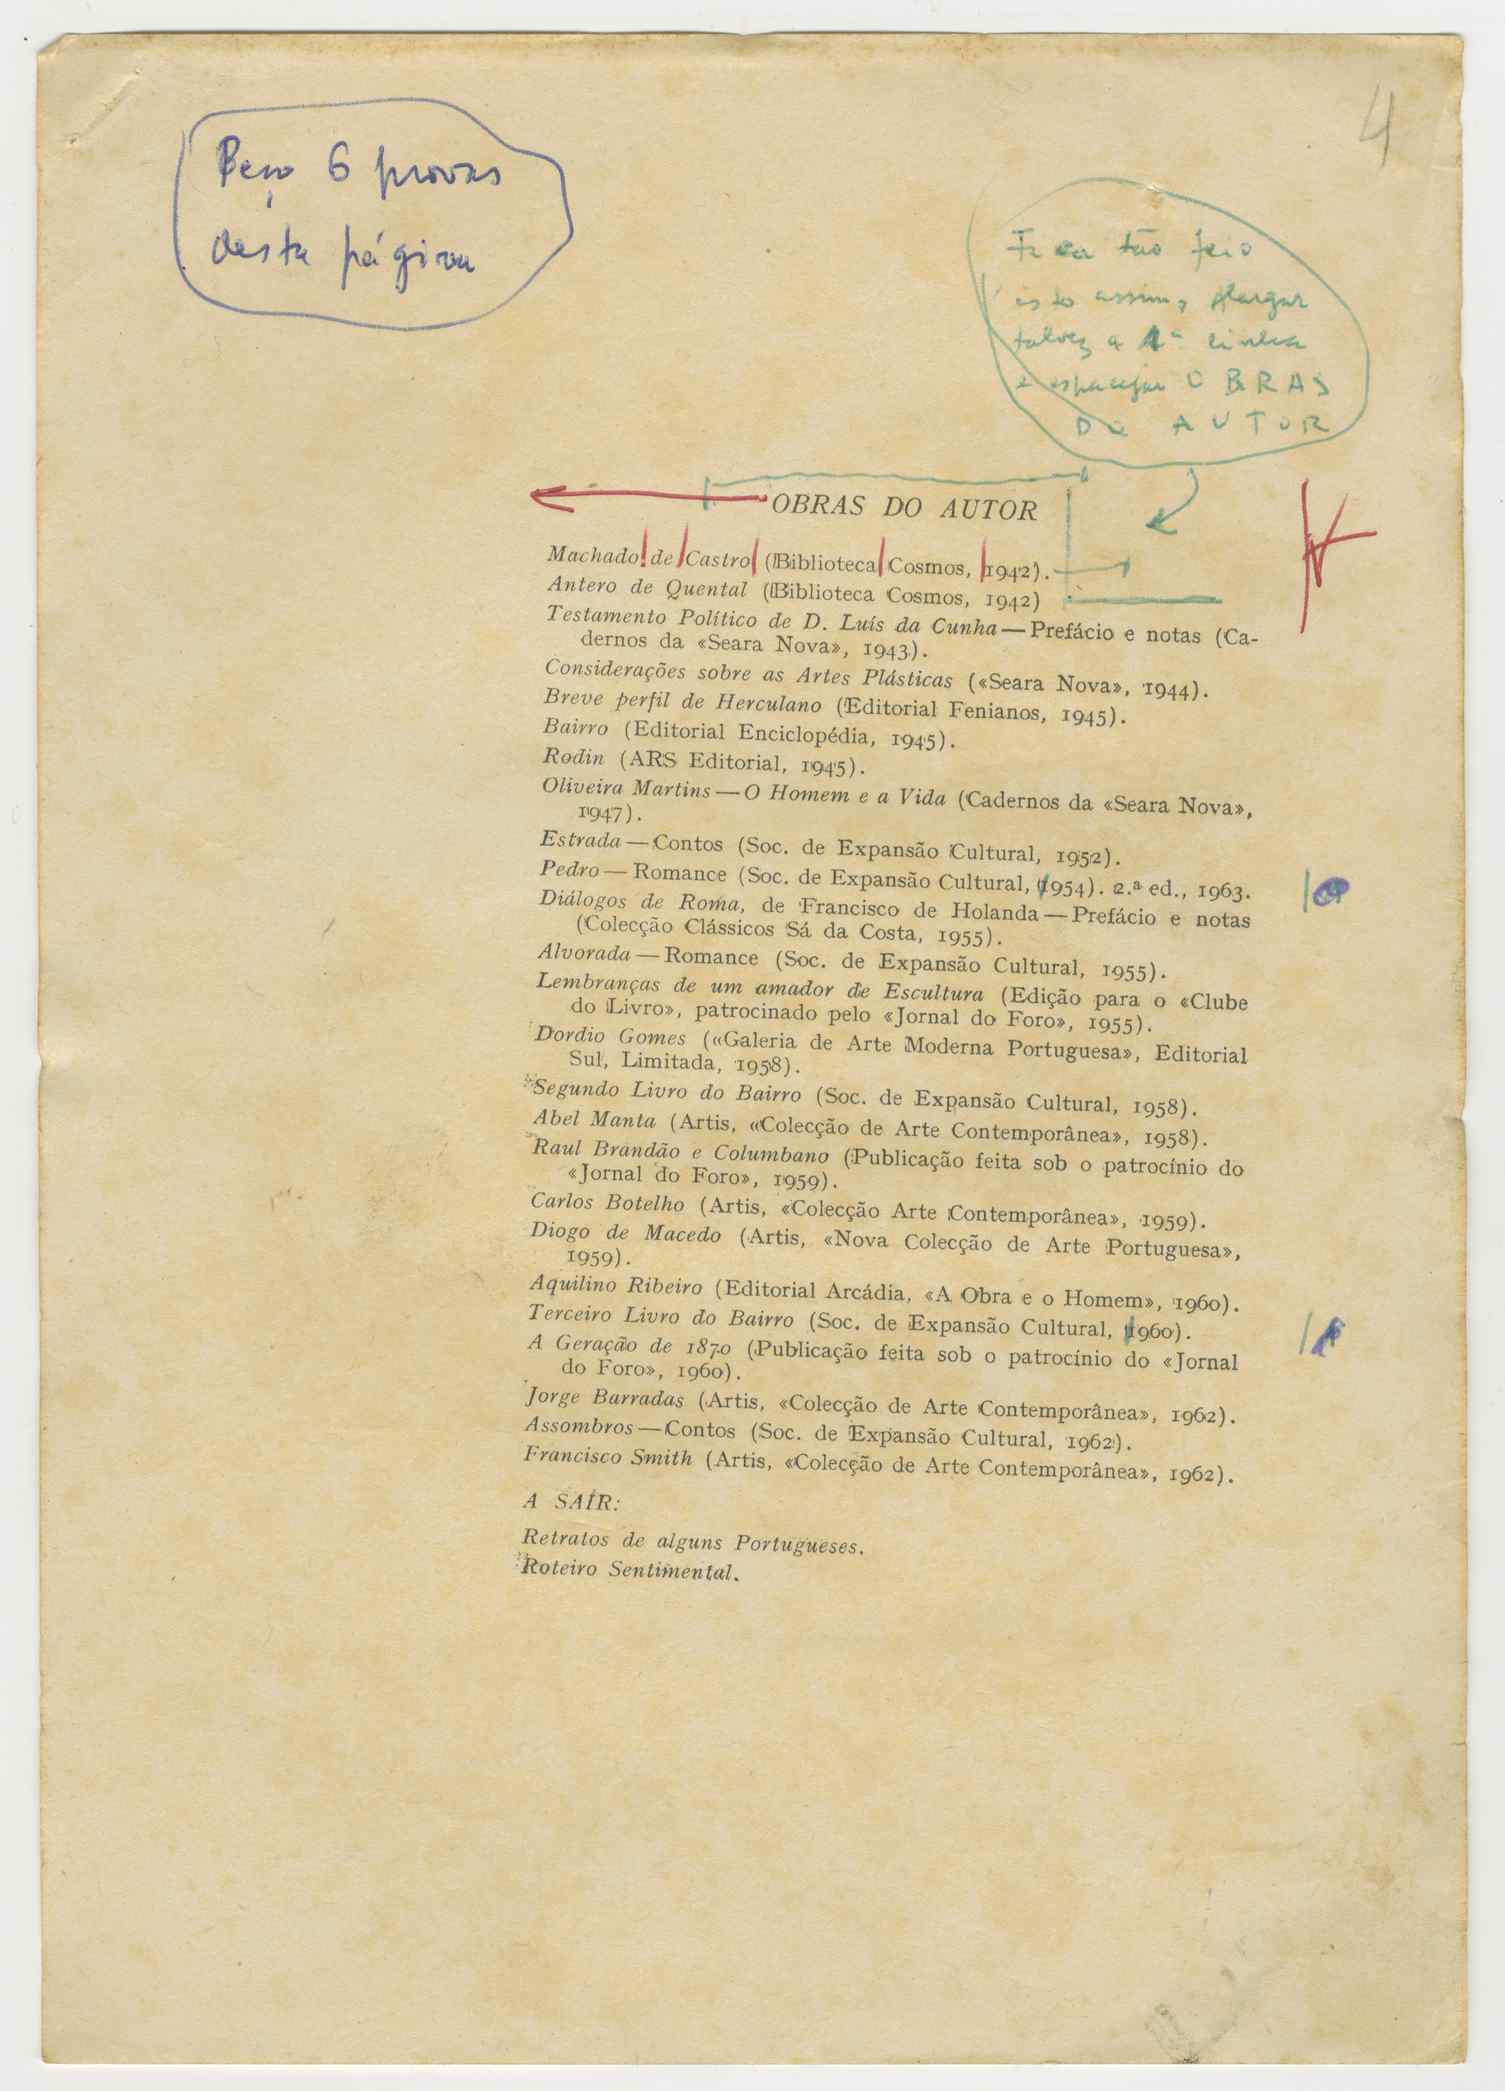 4
Peço 6 provas
desta página
Fica tão feio
isto assim, Alargar
talvez a 1ª linha
e espacejar OBRAS
DO AUTOR
OBRAS DO AUTOR
Machado de Castro (Biblioteca Cosmos, 1942).
Antero de Quental (Biblioteca Cosmos, 1942)
Testamento Político de D. Luís da Cunha—Prefácio e notas (Ca-
dernos da «Seara Nova», 1943).
Considerações sobre as Artes Plásticas («Seara Nova», 1944).
Breve perfil de Herculano (Editorial Fenianos, 1945).
Bairro (Editorial Enciclopédia, 1945).
Rodin (ARS Editorial, 1945).
Oliveira Martins—O Homem e a Vida (Cadernos da «Seara Nova»,
1947).
Estrada—Contos (Soc. de Expansão Cultural, 1952).
Pedro—Romance (Soc. de Expansão Cultural, 1954). 2.ª ed., 1963.
Diálogos de Roma, de Francisco de Holanda—Prefácio e notas
(Colecção Clássicos Sá da Costa, 1955).
Alvorada—Romance (Soc. de Expansão Cultural, 1955).
Lembranças de um amador de Escultura (Edição para o «Clube
do Livro», patrocinado pelo «Jornal do Foro», 1955).
Dordio Gomes («Galeria de Arte Moderna Portuguesa», Editorial
Sul, Limitada, 1958).
Segundo Livro do Bairro (Soc. de Expansão Cultural, 1958).
Abel Manta (Artis, «Colecção de Arte Contemporânea», 1958).
Raul Brandão e Columbano (Publicação feita sob o patrocínio do
«Jornal do Foro», 1959).
Carlos Botelho (Artis, «Colecção Arte Contemporânea», 1959).
Diogo de Macedo (Artis, «Nova Colecção de Arte Portuguesa»,
1959).
Aquilino Ribeiro (Editorial Arcádia, «A Obra e o Homem», 1960).
Terceiro Livro do Bairro (Soc. de Expansão Cultural, 1960).
A Geração de 1870 (Publicação feita sob o patrocínio do «Jornal
do Foro», 1960).
Jorge Barradas (Artis, «Colecção de Arte Contemporânea», 1962).
Assombros—Contos (Soc. de Expansão Cultural, 1962).
Francisco Smith (Artis, «Colecção de Arte Contemporânea», 1962).
A SAÍR:
Retratos de alguns Portugueses.
Roteiro Sentimental.